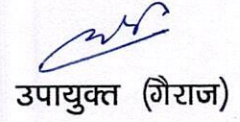 उपायुक्त (गैराज)